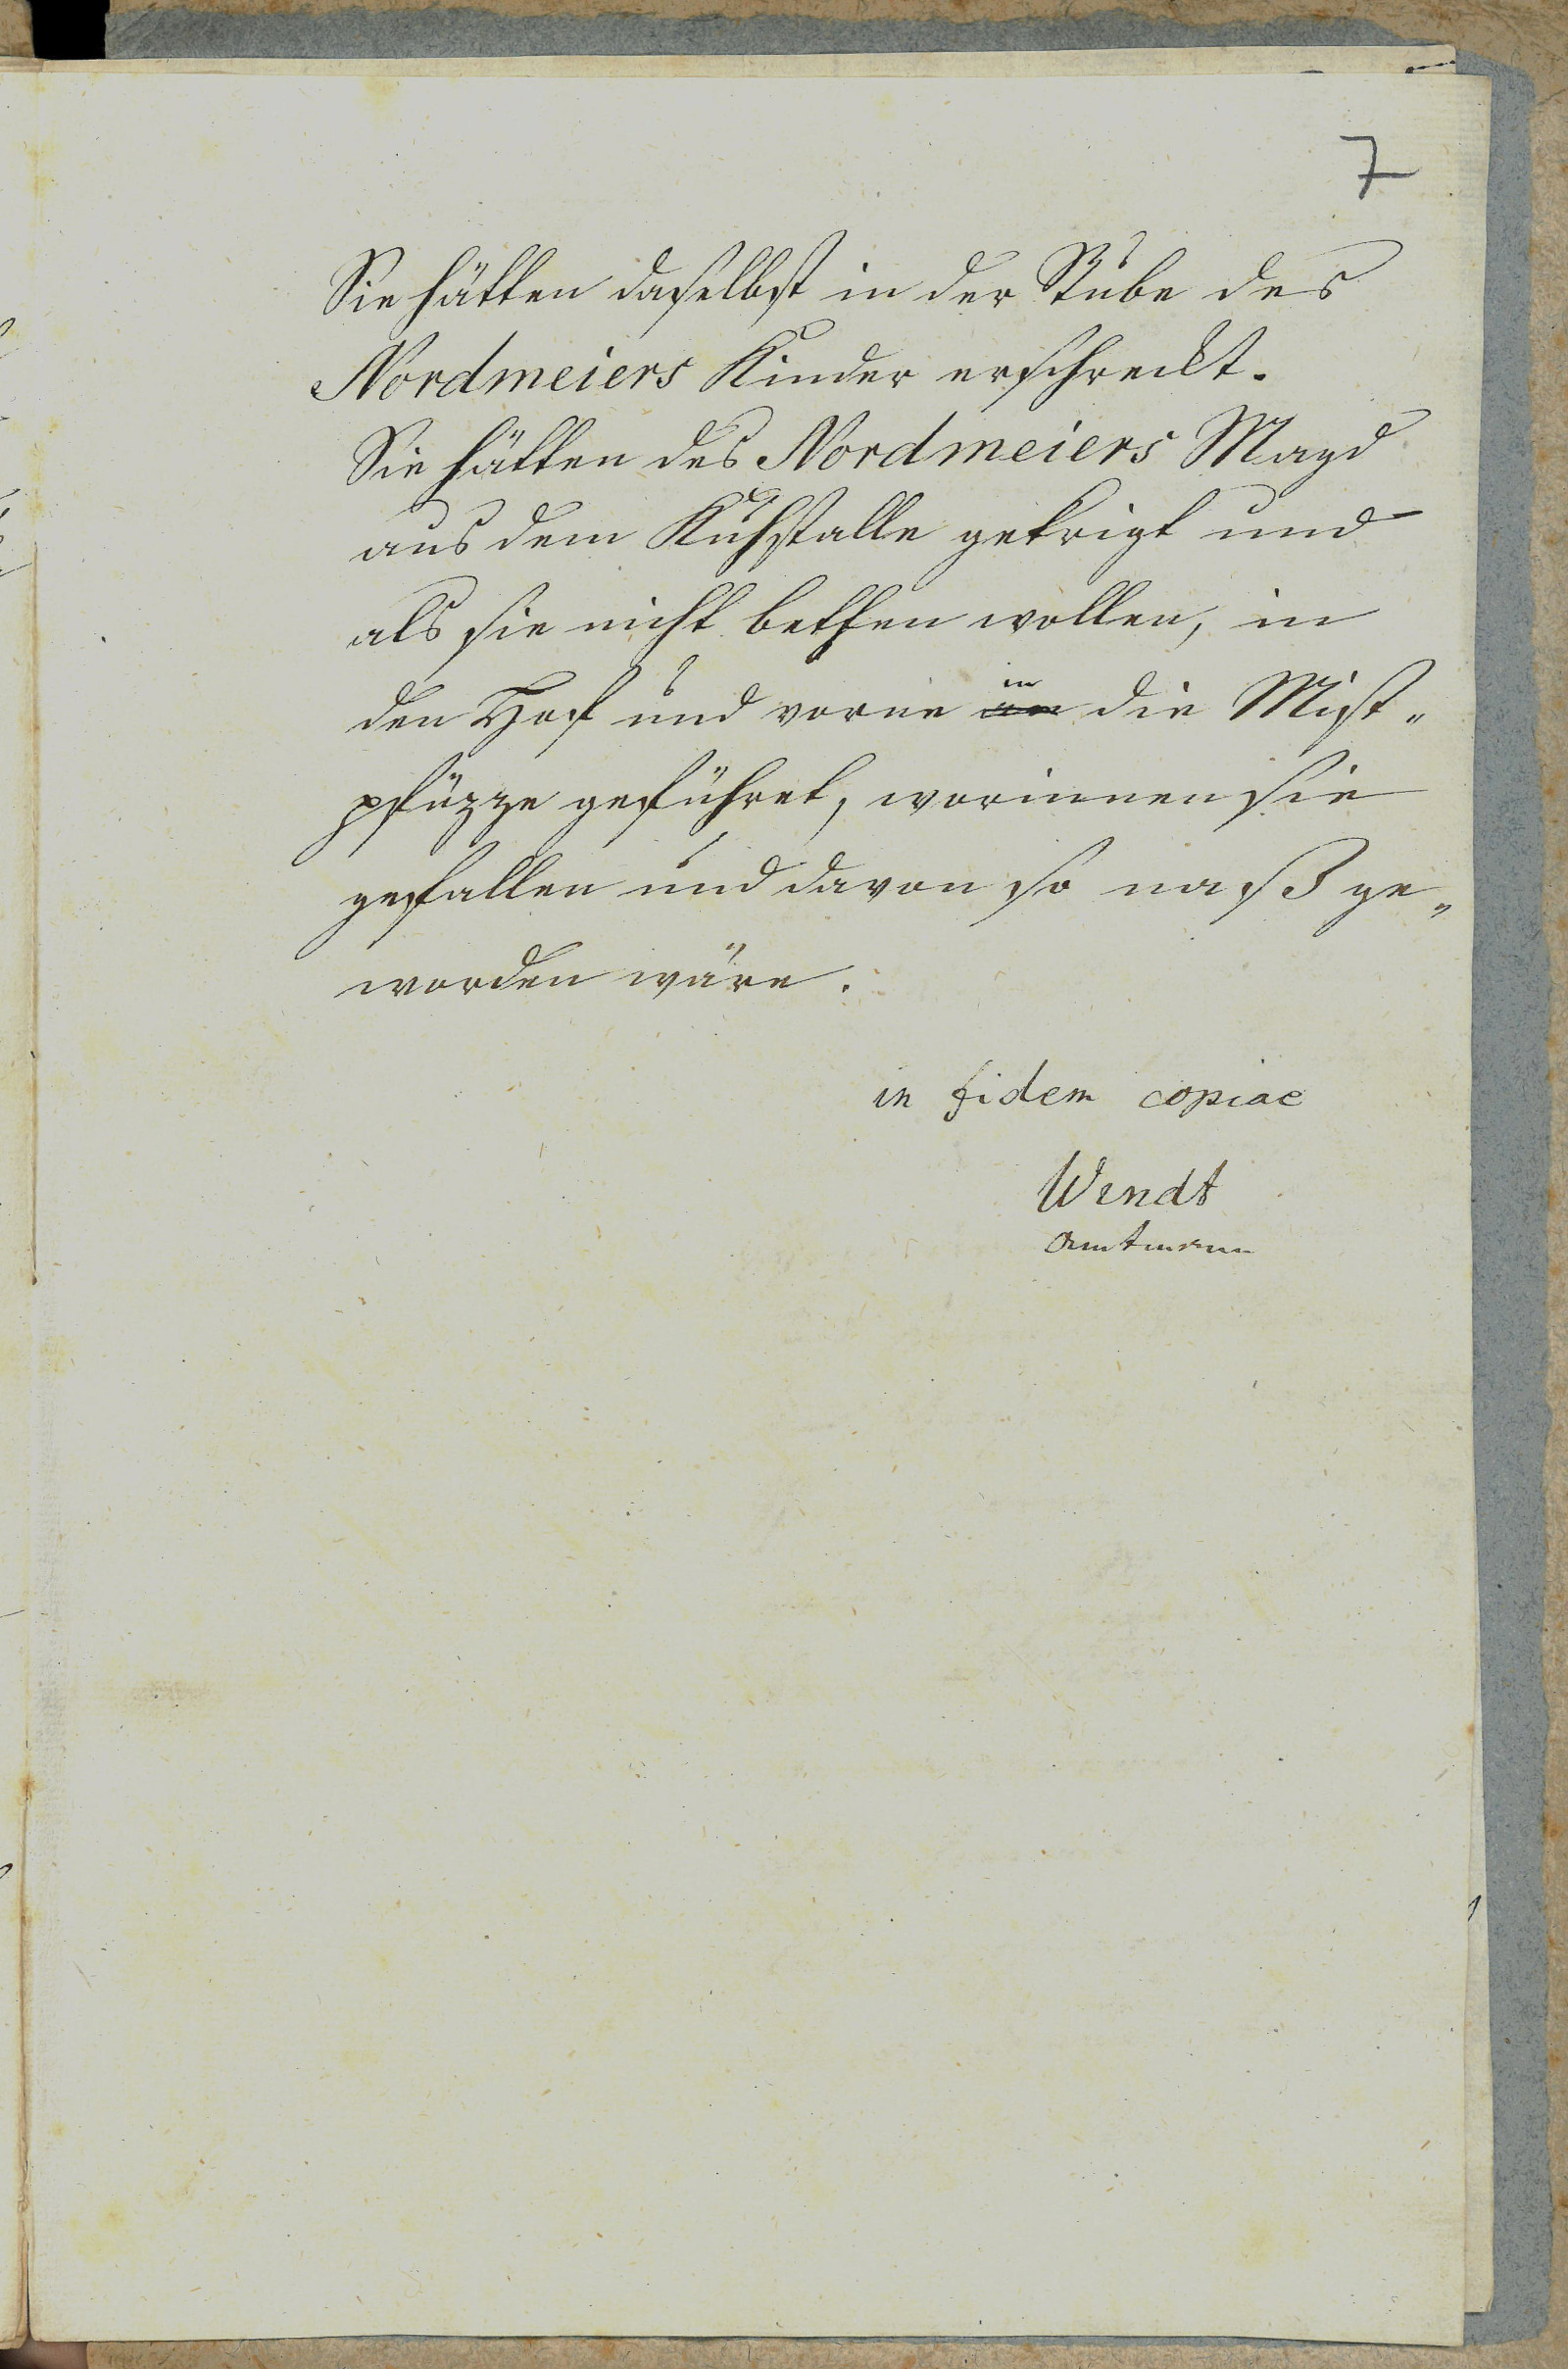 7
Sie hätten daselbst in der Stube des
Nordmeiers Kinder erschreckt.
Sie hätten des Nordmeiers Magd
aus dem Kuhstalle gekrigt und
als sie nicht bethen wollen, in
in
den Hof und vorne an die Mist„
pfüzze geführet, worinnen sie
gefallen und davon so naß ge„
worden wäre.
in fidem copiae
Wendt
Amtmann